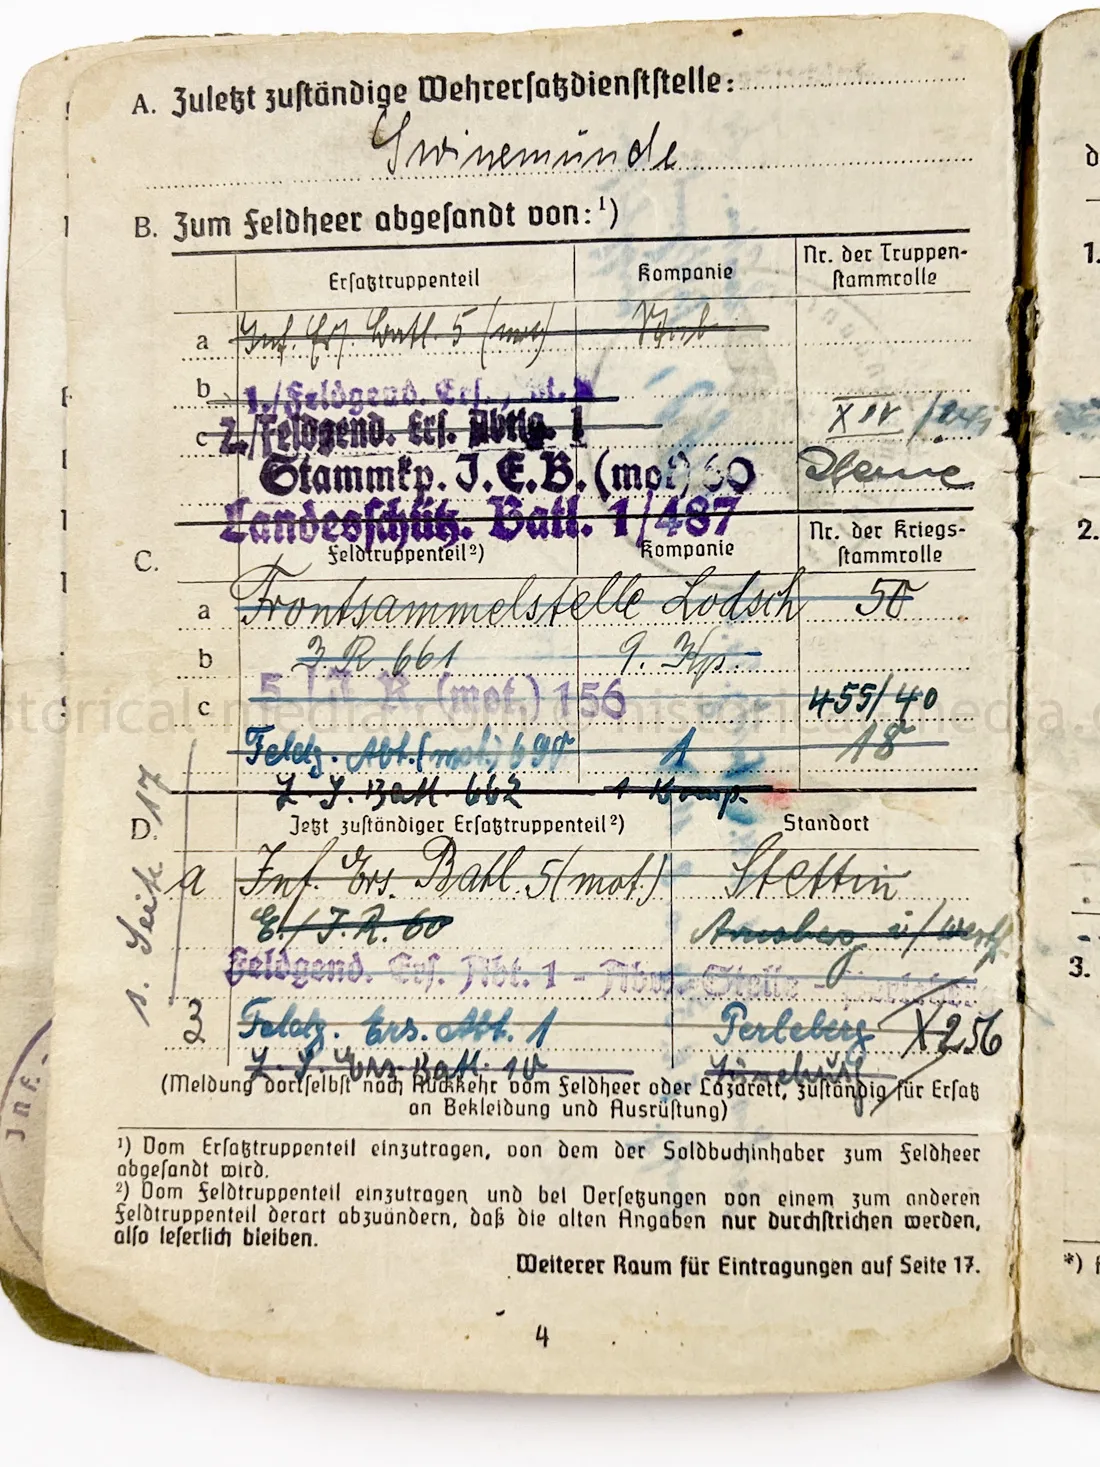 A. Zuletzt zuständige Wehrersatzdienststelle:
Swinemünde
B. Zum Feldheer abgesandt von: ¹)
Ersatztruppenteil Kompanie Nr. der Truppen-
stammrolle
a Inf. Ers. Batl. 5 (mot)
b 1./Feldgend. Ers.
c 2./Feldgend. Ers. Abtlg. 1 XIV
Stammkp. I.E.B. (mot) 60
Landesschütz. Batl. 1/487
C. Feldtruppenteil ²) Kompanie Nr. der Kriegs-
stammrolle
a Frontsammelstelle Lodsch 50
b J. R. 661 9. Kp.
c 5. / J. R. (mot.) 156 455/40
Feldg. Abt. (mot.) 690 1 18
L. S. Batl. 662 1 Komp.
D. Jetzt zuständiger Ersatztruppenteil ²) Standort
s. Seite 17
a Inf. Ers. Batl. 5 (mot.) Stettin
E./J.R. 60 Arnsberg i/Westf.
Feldgend. Ers. Abt. 1 - Abw. Stelle -
3 Feldg. Ers. Abt. 1 Perleberg X 256
L. S. Ers. Batl. 10
(Meldung dortselbst nach Rückkehr vom Feldheer oder Lazarett, zuständig für Ersatz
an Bekleidung und Ausrüstung)
¹) Vom Ersatztruppenteil einzutragen, von dem der Soldbuchinhaber zum Feldheer
abgesandt wird.
²) Vom Feldtruppenteil einzutragen und bei Versetzungen von einem zum anderen
Feldtruppenteil derart abzuändern, daß die alten Angaben nur durchstrichen werden,
also leserlich bleiben.
Weiterer Raum für Eintragungen auf Seite 17.
4
1.
2.
3.
*)
Inf.
historical-media.com